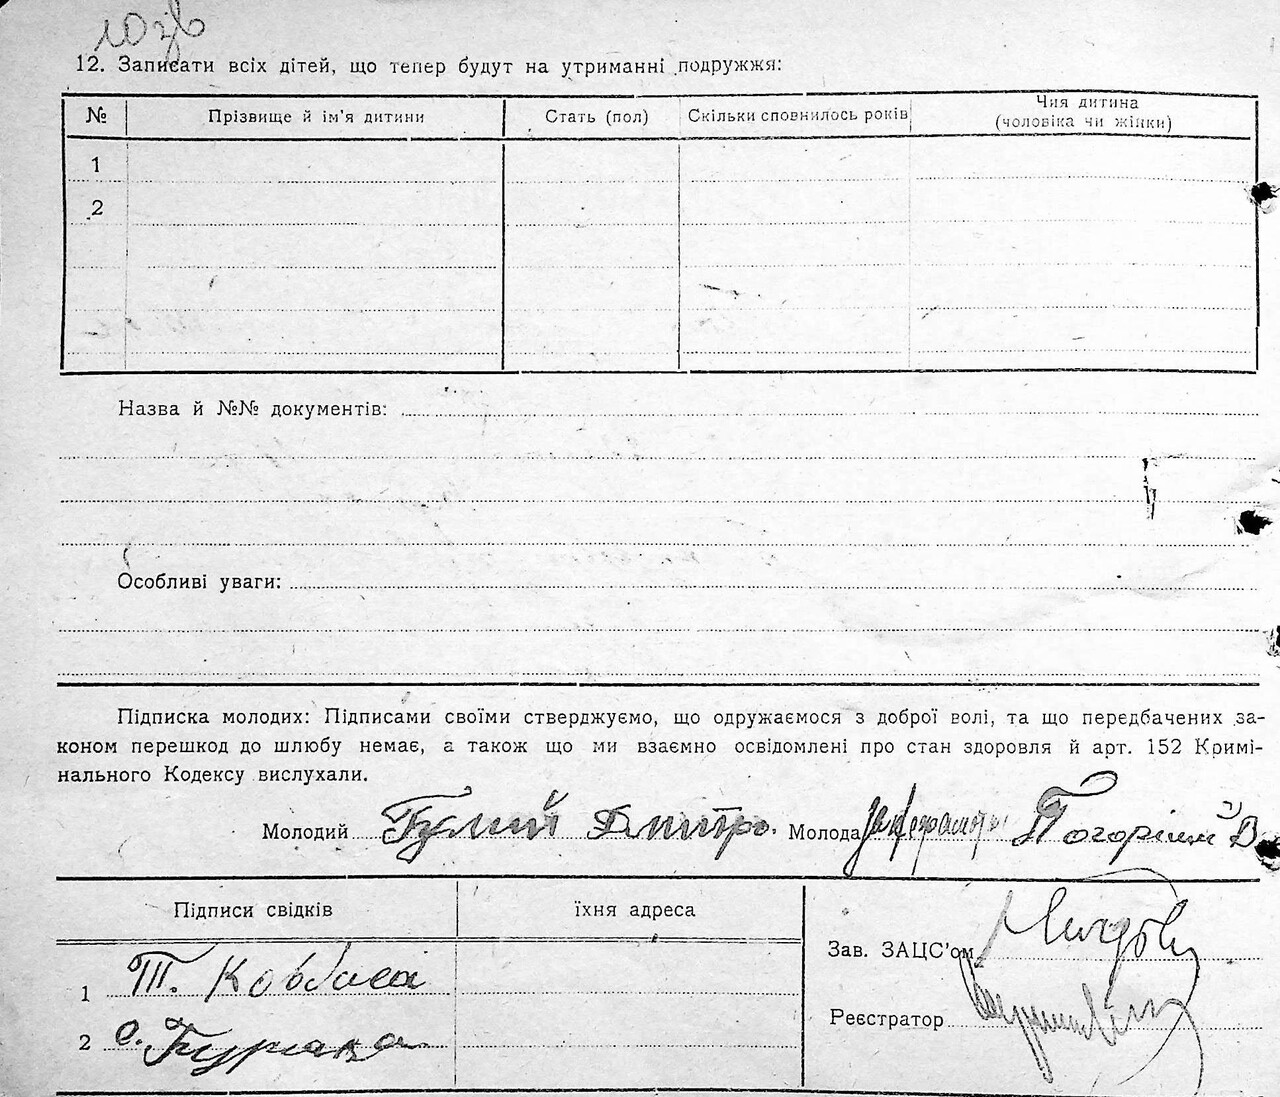 10 зв
12. Записати всіх дітей, що тепер будут на утриманні подружжя:
№ Прізвище й ім'я дитини Стать (пол) Скільки сповнилось років Чия дитина (чоловіка чи жінки)
1
2
Назва й №№ документів:
Особливі уваги:
Підписка молодих: Підписами своїми стверджуємо, що одружаємося з доброї волі, та що передбачених за-
коном перешкод до шлюбу немає, а також що ми взаємно освідомлені про стан здоровля й арт. 152 Кримі-
нального Кодексу вислухали.
Молодий Гулий Дмитро. Молода Погорілий Д
Підписи свідків їхня адреса
Зав. ЗАЦС'ом
1 Т. Ковбаса
Реєстратор
2 С.